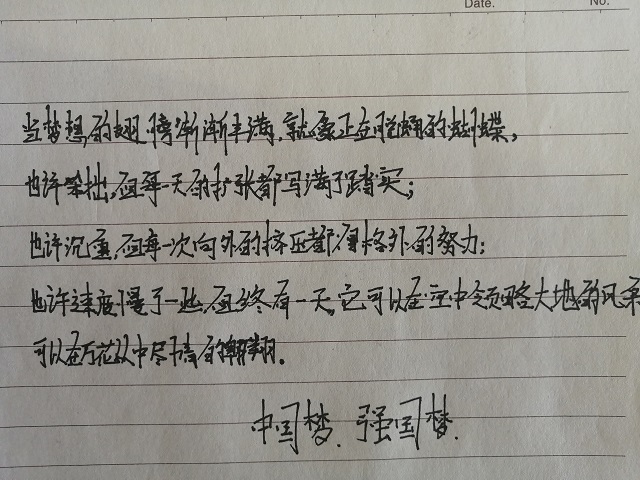 Date.
No.
当梦想的翅膀渐渐丰满,就像正在脱蛹的蝴蝶,
也许笨拙,但每一天的扩张都写满了踏实;
也许沉重,但每一次向外的挤压都有格外的努力;
也许速度慢了一些,但终有一天,它可以在空中领略大地的风采
可以在万花丛中尽情的翱翔。
中国梦.强国梦.